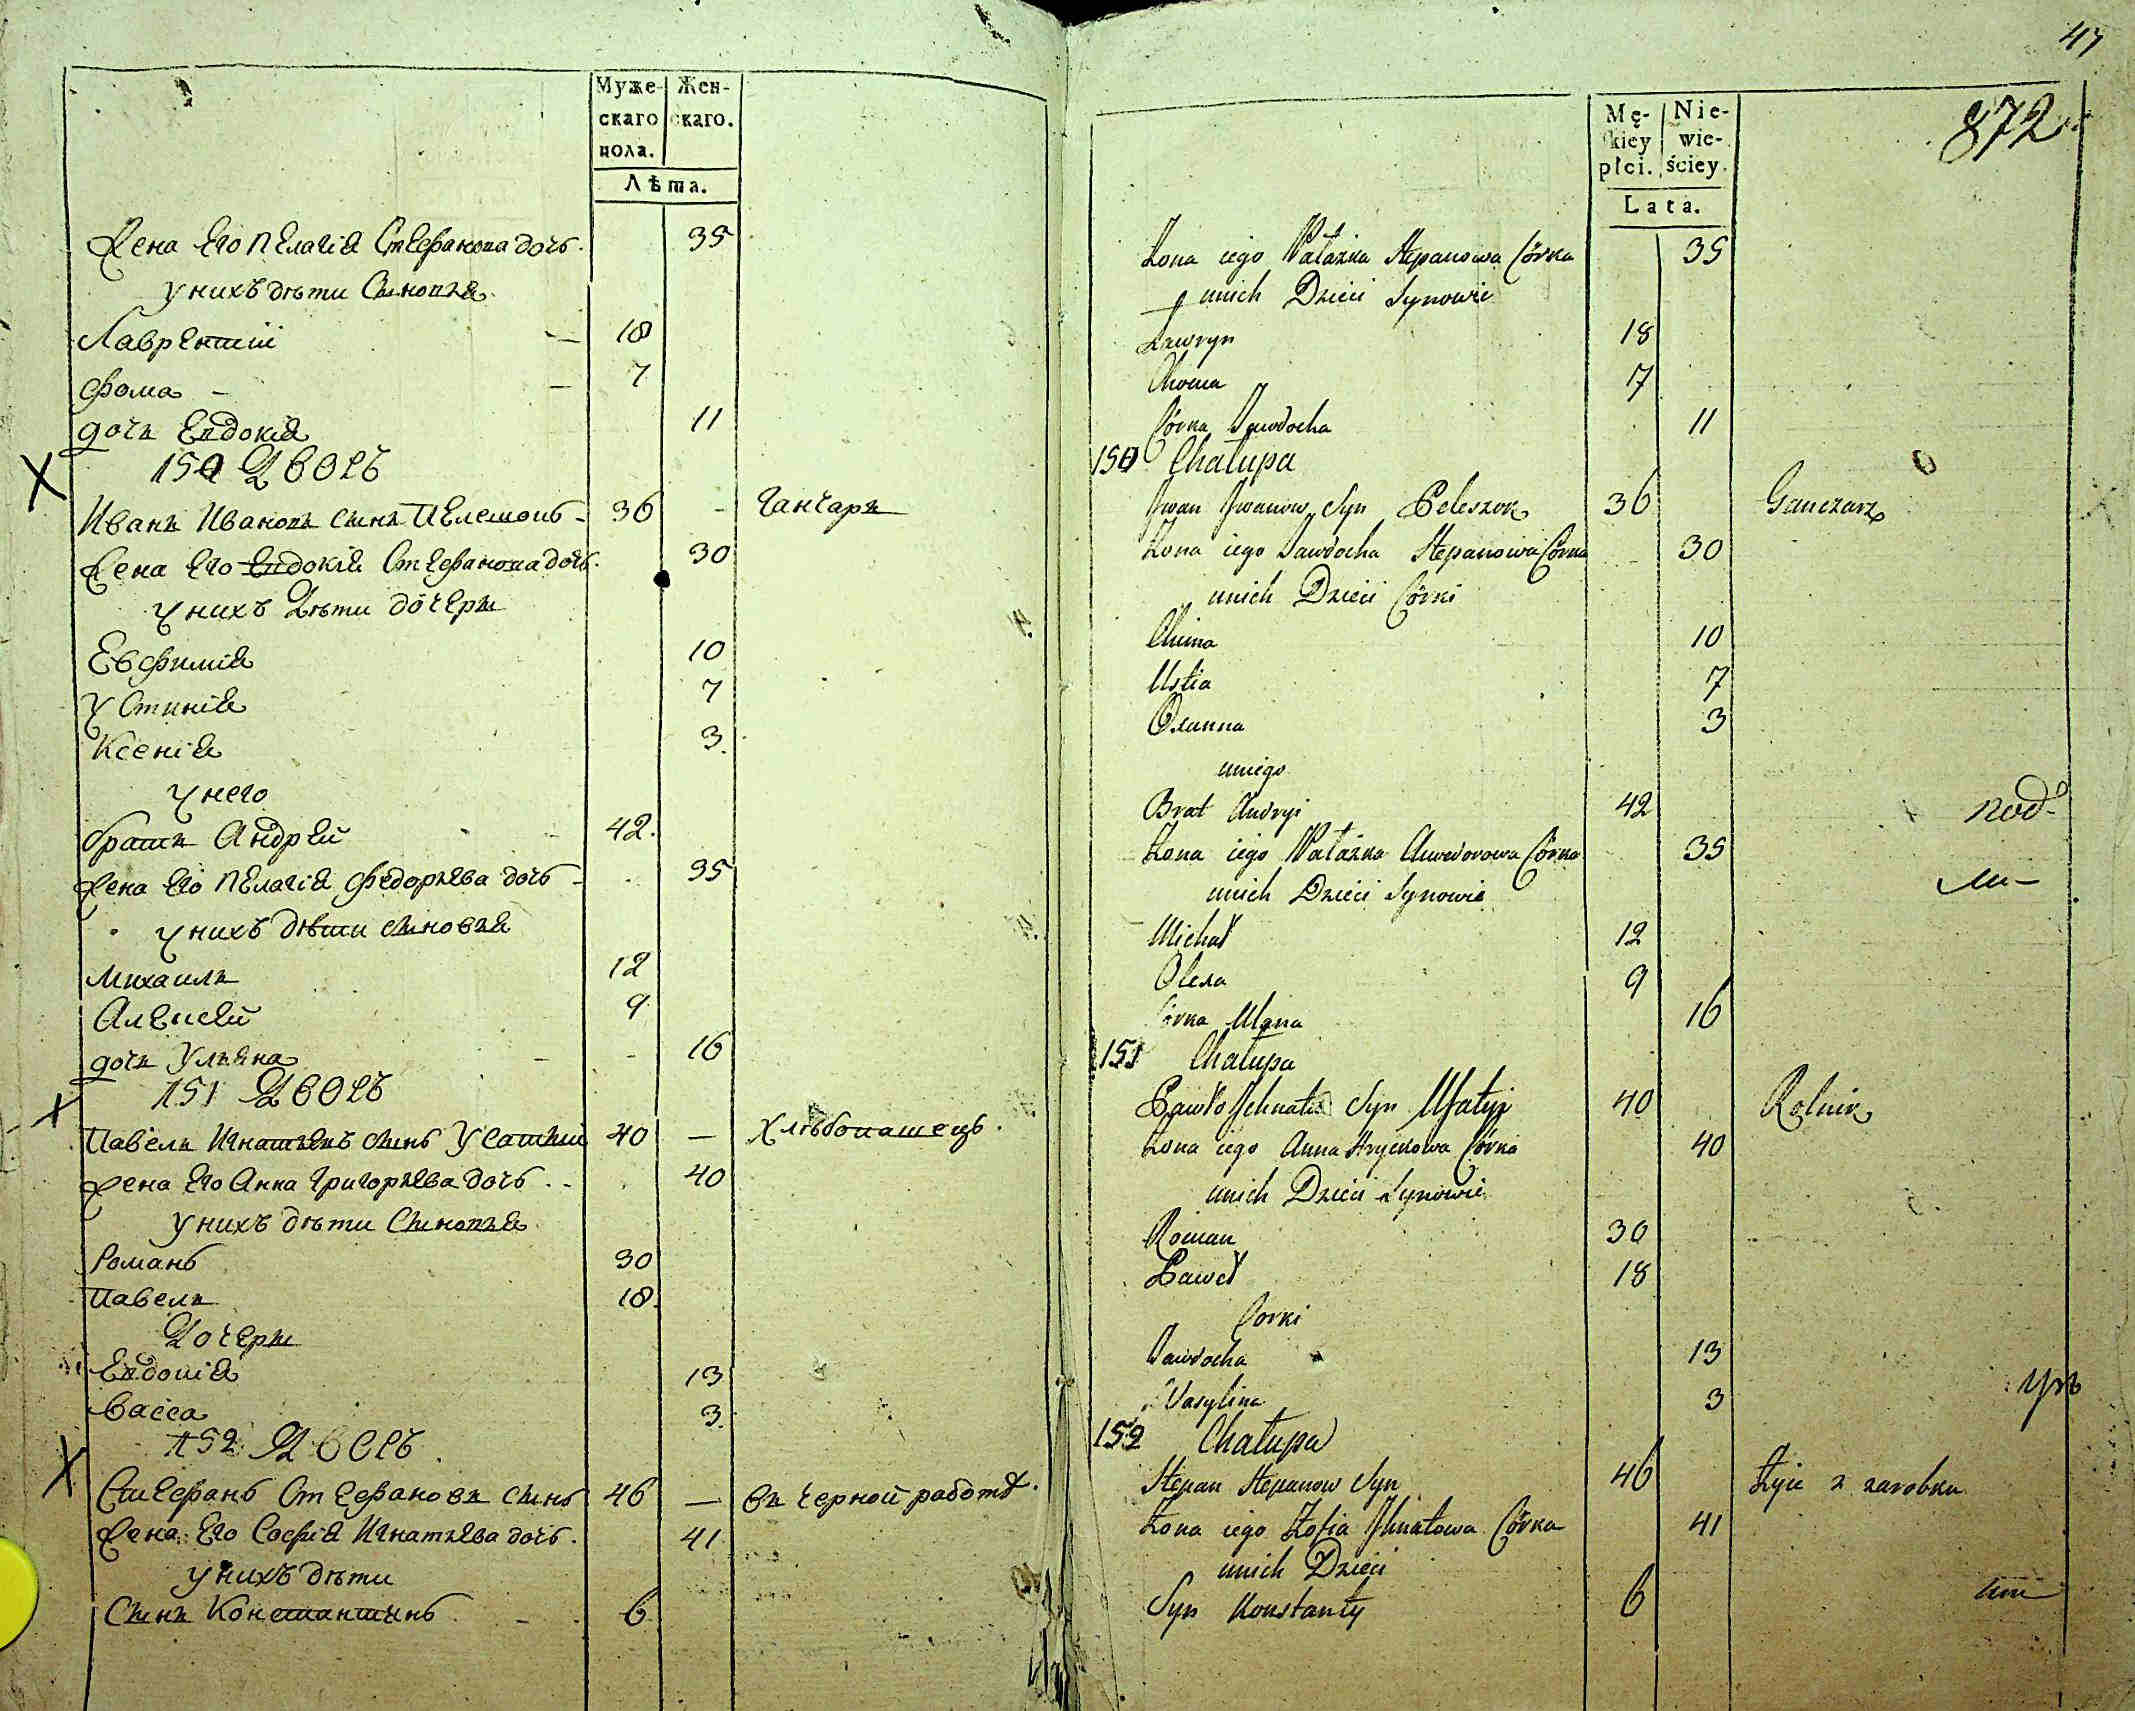 Муже- Жен-
скаго скаго.
пола.
Лѣта.
Жена Его Пелагія Стефанова дочь. 35
у нихъ дѣти Сыновья
Лаврентій — 18
Фома — 7
дочь Евдокія 11
150 Дворъ
Иванъ Ивановъ сынъ Пелешокъ - 36 - Ганчаръ
Жена Его Евдокія Стефанова дочь. 30
у нихъ Дѣти дочери
Евфимія 10
Устинія 7
Ксенія 3
у него
братъ Андрей 42.
Жена Его Пелагія Федорьева дочь - 35
у нихъ дѣти сыновья
Михаилъ 12
Алексей 9
дочь Ульяна 16
151 Дворъ
Павелъ Игнатьевъ сынъ Усатый 40 — Хлѣбопашецъ.
Жена Его Анна Григорьева дочь. 40
у нихъ дѣти Сыновья
Романъ 30
Павелъ 18
Дочери
Евдокія 13
Васса 3
152 Дворъ
Стефанъ Стефановъ сынъ 46 — въ черной работѣ.
Жена Его Софія Игнатьева дочь. 41
у нихъ дѣти
Сынъ Константинъ 6
47
872
Mę- Nie-
skiey wie-
płci. ściey.
Lata.
Żona iego Pałażka Stepanowa Córka 35
u nich Dzieci Synowie
Ławryn 18
Choma 7
Córka Jawdocha 11
150 Chałupa
Jwan Jwanow Syn Peleszok 36 Ganczarz
Żona iego Jawdocha Stepanowa Córka 30
unich Dzieci Córki
Chima 10
Ustia 7
Oxanna 3
uniego
Brat Andryi 42 под-
Żona iego Pałażka Chwedorowa Córka 35
unich Dzieci Synowie ли-
Michał 12
Olexa 9
Córka Ulana 16
151 Chałupa
Pawło Jchnatów Syn Usatyi 40 Rolnik
Żona iego Anna Hryckowa Córka 40
unich Dzieci Synowie
Roman 30
Paweł 18
Corki
Jawdocha 13
Wasylina 3
152 Chałupa
Stepan Stepanow Syn 46 Żyie z zarobku
Żona iego Zofia Jhnatowa Córka 41
unich Dzieci
Syn Konstanty 6